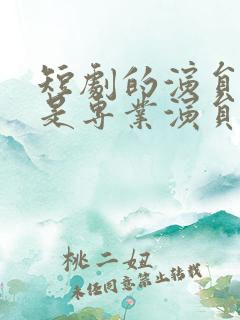 短劇的演員
是專業演員
桃二妞
未經同意禁止轉載